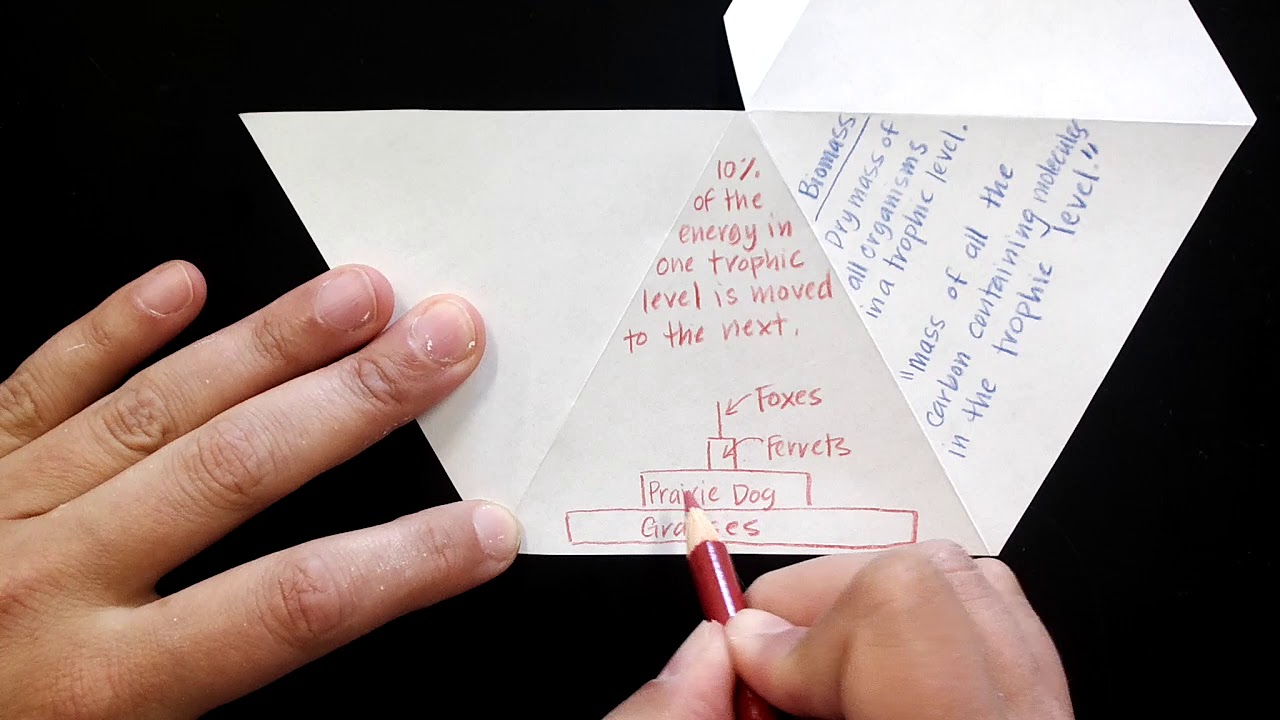 10%
of the
energy in
one trophic
level is moved
to the next.
Foxes
Ferrets
Prairie Dog
Grasses
Biomass
Dry mass of
all organisms
in a trophic level.
"mass of all the
carbon containing molecules
in the trophic level."